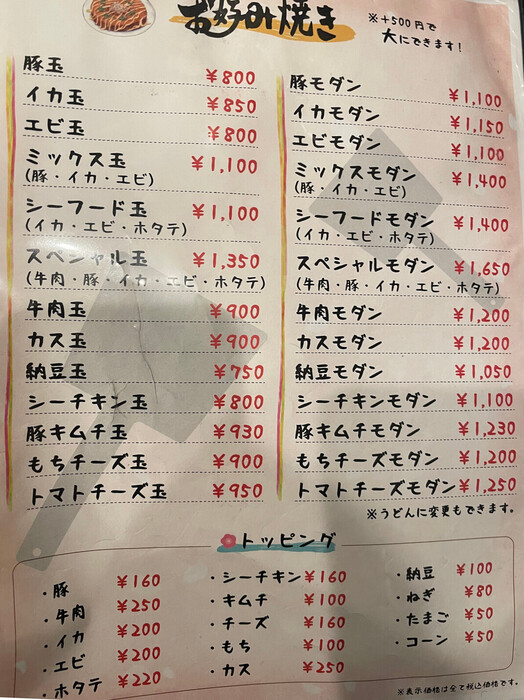 お好み焼き
※+500円で
大にできます!
豚玉 ¥800
イカ玉 ¥850
エビ玉 ¥800
ミックス玉 ¥1,100
(豚・イカ・エビ)
シーフード玉 ¥1,100
(イカ・エビ・ホタテ)
スペシャル玉 ¥1,350
(牛肉・豚・イカ・エビ・ホタテ)
牛肉玉 ¥900
カス玉 ¥900
納豆玉 ¥750
シーチキン玉 ¥800
豚キムチ玉 ¥930
もちチーズ玉 ¥900
トマトチーズ玉 ¥950
豚モダン ¥1,100
イカモダン ¥1,150
エビモダン ¥1,100
ミックスモダン ¥1,400
(豚・イカ・エビ)
シーフードモダン ¥1,400
(イカ・エビ・ホタテ)
スペシャルモダン ¥1,650
(牛肉・豚・イカ・エビ・ホタテ)
牛肉モダン ¥1,200
カスモダン ¥1,200
納豆モダン ¥1,050
シーチキンモダン ¥1,100
豚キムチモダン ¥1,230
もちチーズモダン ¥1,200
トマトチーズモダン ¥1,250
※うどんに変更もできます。
トッピング
・豚 ¥160
・牛肉 ¥250
・イカ ¥200
・エビ ¥200
・ホタテ ¥220
・シーチキン ¥160
・キムチ ¥100
・チーズ ¥160
・もち ¥100
・カス ¥250
・納豆 ¥100
・ねぎ ¥80
・たまご ¥50
・コーン ¥50
※表示価格は全て税込価格です。